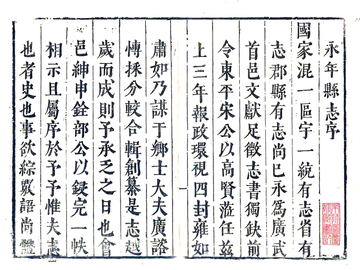 永年縣志序
國家混一區宇一統有志省有
志郡縣有志尚已永爲廣武
首邑文獻足徵志書獨缺前
令東平宋公以高賢蒞任兹
上三年報政環視四封雍如
肅如乃謀于鄉士大夫廣諮
傳採分較合輯創纂是志越
歲而成則予承乏之日也會
邑紳申銓部公以鋟完一帙
相示且屬序於予予惟夫志
也者史也事欲綜覈語尚體